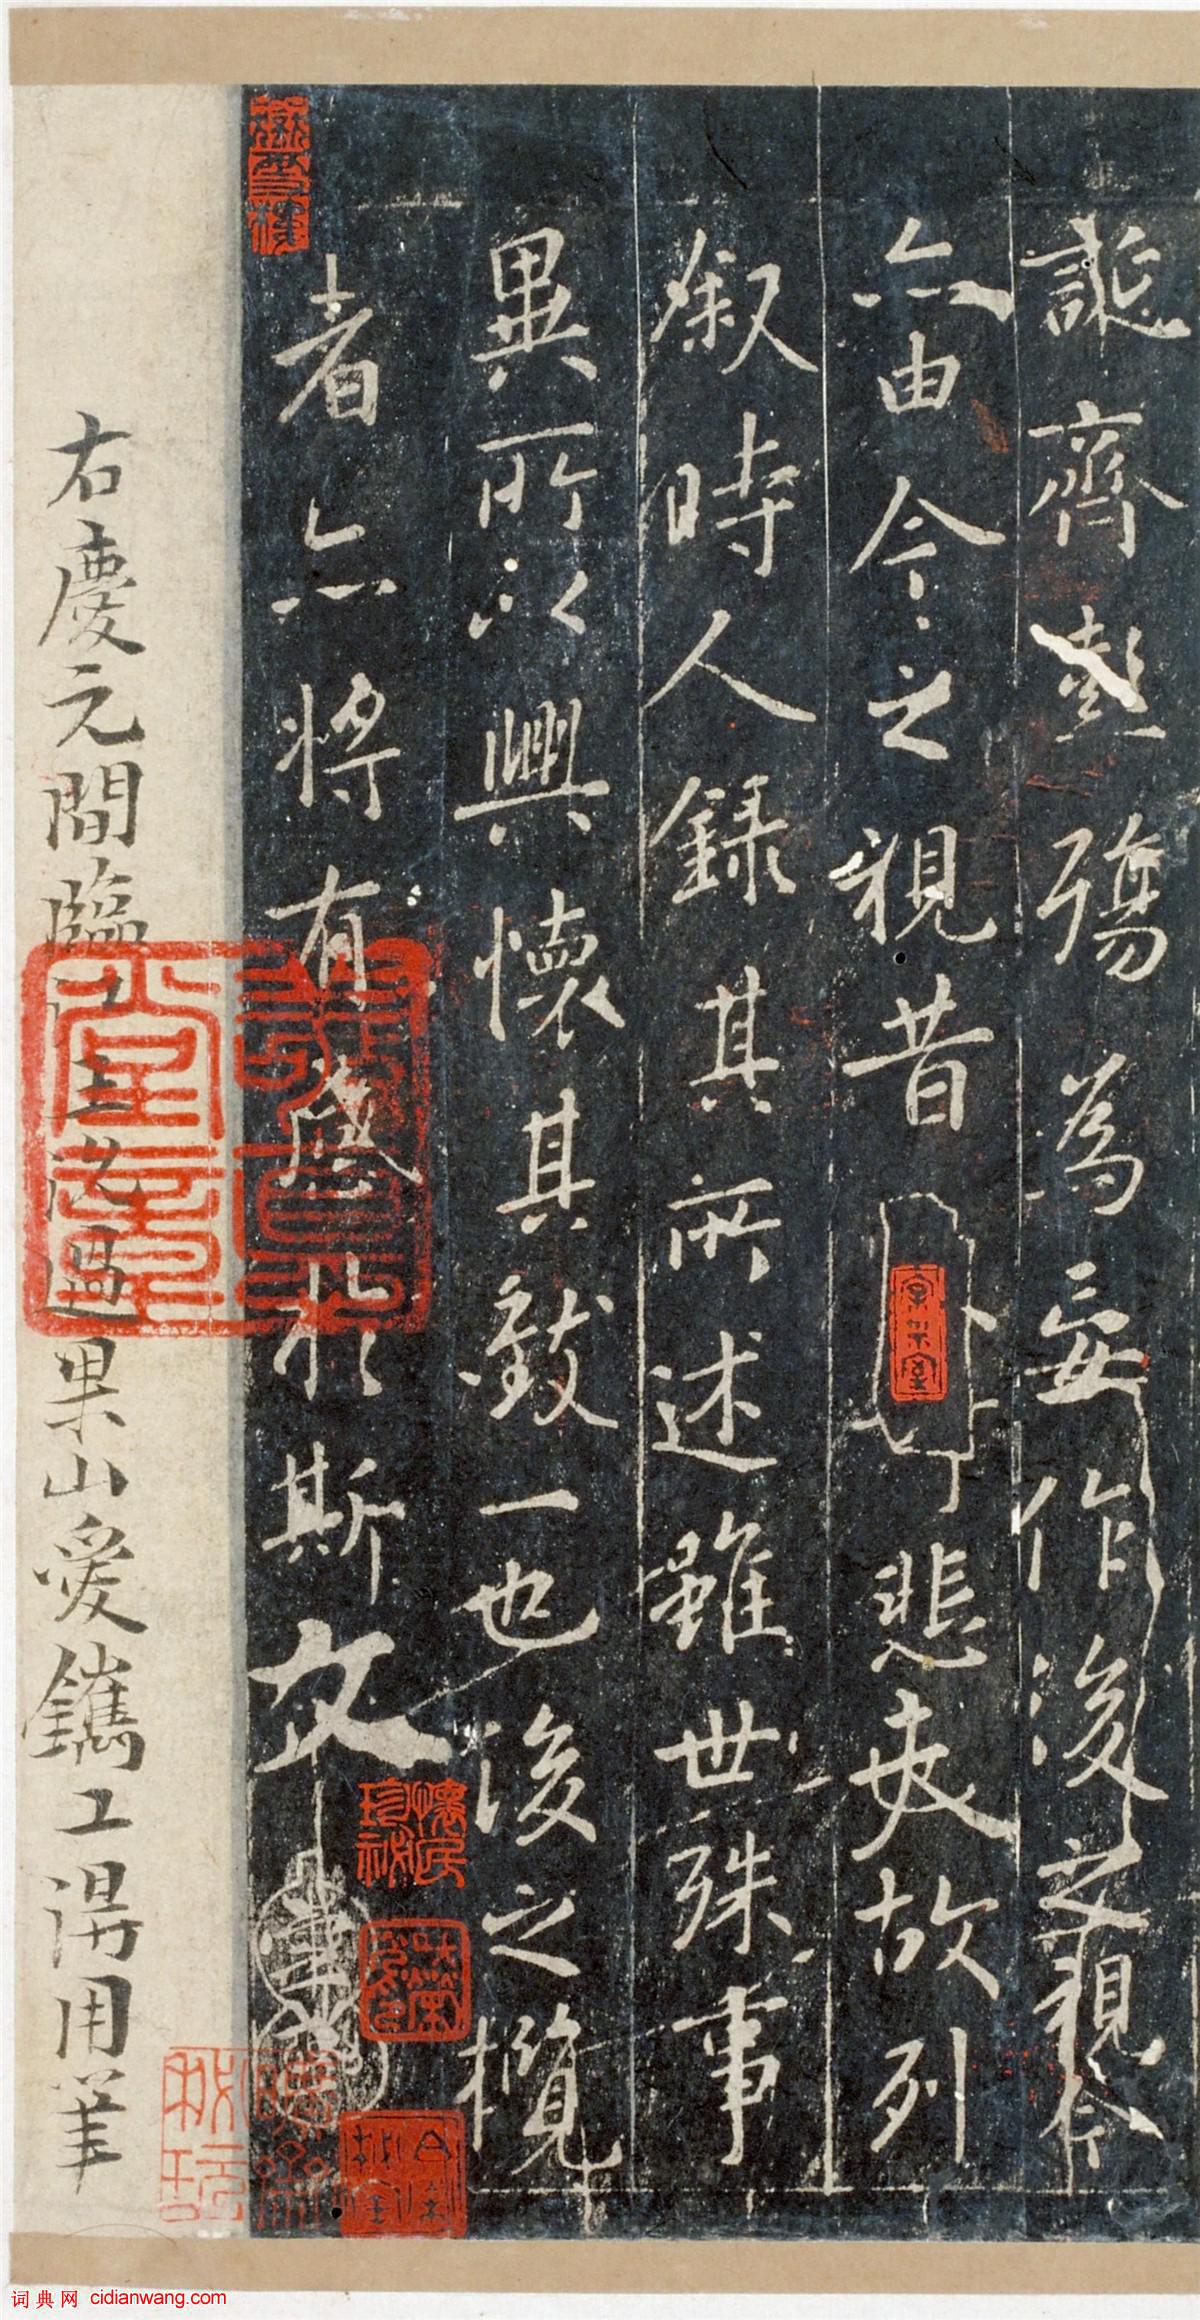 誕齊彭殤為妄作後之視今
亦由今之視昔悲夫故列
叙時人錄其所述雖世殊事
異所以興懷其致一也後之攬
者亦將有感於斯文
右慶元間臨江王沇過果山愛鐫工得用筆
词典网 cidianwang.com